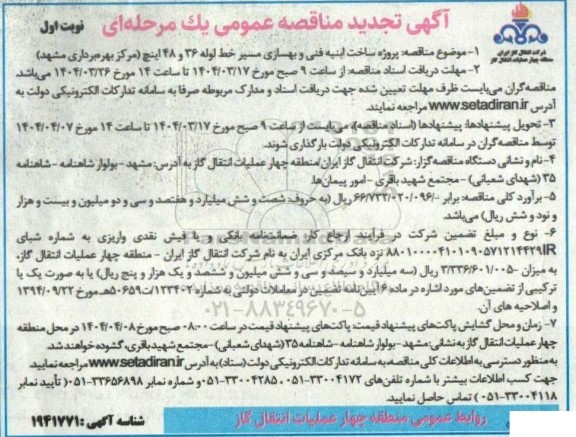 آگهی تجدید مناقصه عمومی یك مرحله‌ای
نوبت اول
شرکت انتقال گاز ایران
منطقه چهار عملیات انتقال گاز
۱- موضوع مناقصه: پروژه ساخت ابنیه فنی و بهسازی مسیر خط لوله ۳۶ و ۴۸ اینچ (مرکز بهره‌برداری مشهد)
۲- مهلت دریافت اسناد مناقصه: از ساعت ۹ صبح مورخ ۱۴۰۴/۰۳/۱۷ تا ساعت ۱۴ مورخ ۱۴۰۴/۰۳/۲۶ می‌باشد.
مناقصه‌گران می‌بایست ظرف مهلت تعیین شده جهت دریافت اسناد و مدارک مربوطه صرفا به سامانه تدارکات الکترونیکی دولت به
آدرس www.setadiran.ir مراجعه نمایند.
۳- تحویل پیشنهادها: پیشنهادها (اسناد مناقصه)، می‌بایست از ساعت ۹ صبح مورخ ۱۴۰۴/۰۳/۱۷ تا ساعت ۱۴ مورخ ۱۴۰۴/۰۴/۰۷
توسط مناقصه‌گران در سامانه تدارکات الکترونیکی دولت بارگذاری شوند.
۴- نام و نشانی دستگاه مناقصه‌گزار: شرکت انتقال گاز ایران/منطقه چهار عملیات انتقال گاز به آدرس: مشهد - بولوار شاهنامه - شاهنامه
۳۵ (شهدای شعبانی) - مجتمع شهید باقری - امور پیمان‌ها.
۵- برآورد کلی مناقصه: برابر -/۶۶/۷۳۲/۰۲۰/۰۹۶ ریال (به حروف: شصت و شش میلیارد و هفتصد و سی و دو میلیون و بیست و هزار
و نود و شش ریال) می‌باشد.
۶- نوع و مبلغ تضمین شرکت در فرآیند ارجاع کار: ضمانتنامه بانکی و یا فیش نقدی واریزی به شماره شبای
نزد بانک مرکزی ایران به نام شرکت انتقال گاز ایران - منطقه چهار عملیات انتقال گاز،
به میزان -/۳/۳۳۶/۶۰۱/۰۰۵ ریال (سه میلیارد و سیصد و سی و شش میلیون و ششصد و یک هزار و پنج ریال) یا به صورت یک یا
ترکیبی از تضمین‌های مورد اشاره در ماده ۶ آیین‌نامه تضمین در معاملات دولتی به شماره ۱۲۳۴۰۲/ت۵۰۶۵۹هـ مورخ ۱۳۹۴/۰۹/۲۲
و اصلاحیه های آن.
۰۲۱-۸۸۳۴۹۶۷۰-۵
۷- زمان و محل گشایش پاکت‌های پیشنهاد قیمت: پاکت‌های پیشنهاد قیمت در ساعت ۰۸:۰۰ صبح مورخ ۱۴۰۴/۰۴/۰۸ در محل منطقه
چهار عملیات انتقال گاز به نشانی: مشهد - بولوار شاهنامه - شاهنامه ۳۵ (شهدای شعبانی) - مجتمع شهید باقری، گشوده خواهند شد.
به منظور دسترسی به اطلاعات کلی مناقصه، به سامانه تدارکات الکترونیکی دولت (ستاد) به آدرس www.setadiran.ir مراجعه نمایید.
جهت کسب اطلاعات بیشتر با شماره تلفن‌های ۳۳۰۰۴۱۷۲-۰۵۱ و ۳۳۰۰۴۲۸۵-۰۵۱ و شماره نمابر ۳۳۶۵۶۸۹۸-۰۵۱ (تأیید نمابر
۳۳۰۰۴۱۱۸-۰۵۱) تماس حاصل نمایید.
روابط عمومی منطقه چهار عملیات انتقال گاز
شناسه آگهی: ۱۹۴۱۷۷۱